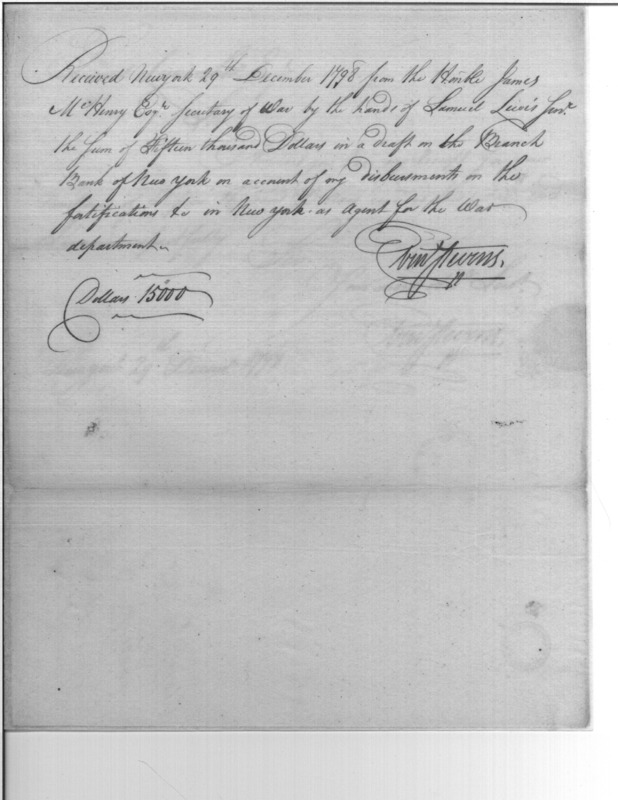 Received New york 29th December 1798 from the Honble James
McHenry Esqr. Secretary of War by the hands of Samuel Lewis Senr.
the Sum of Fifteen thousand Dollars in a draft on the Branch
Bank of New York on account of my disbursments on the
fortifications &c in New York. as Agent for the War
department.
Eben Stevens.
Dollars 15000